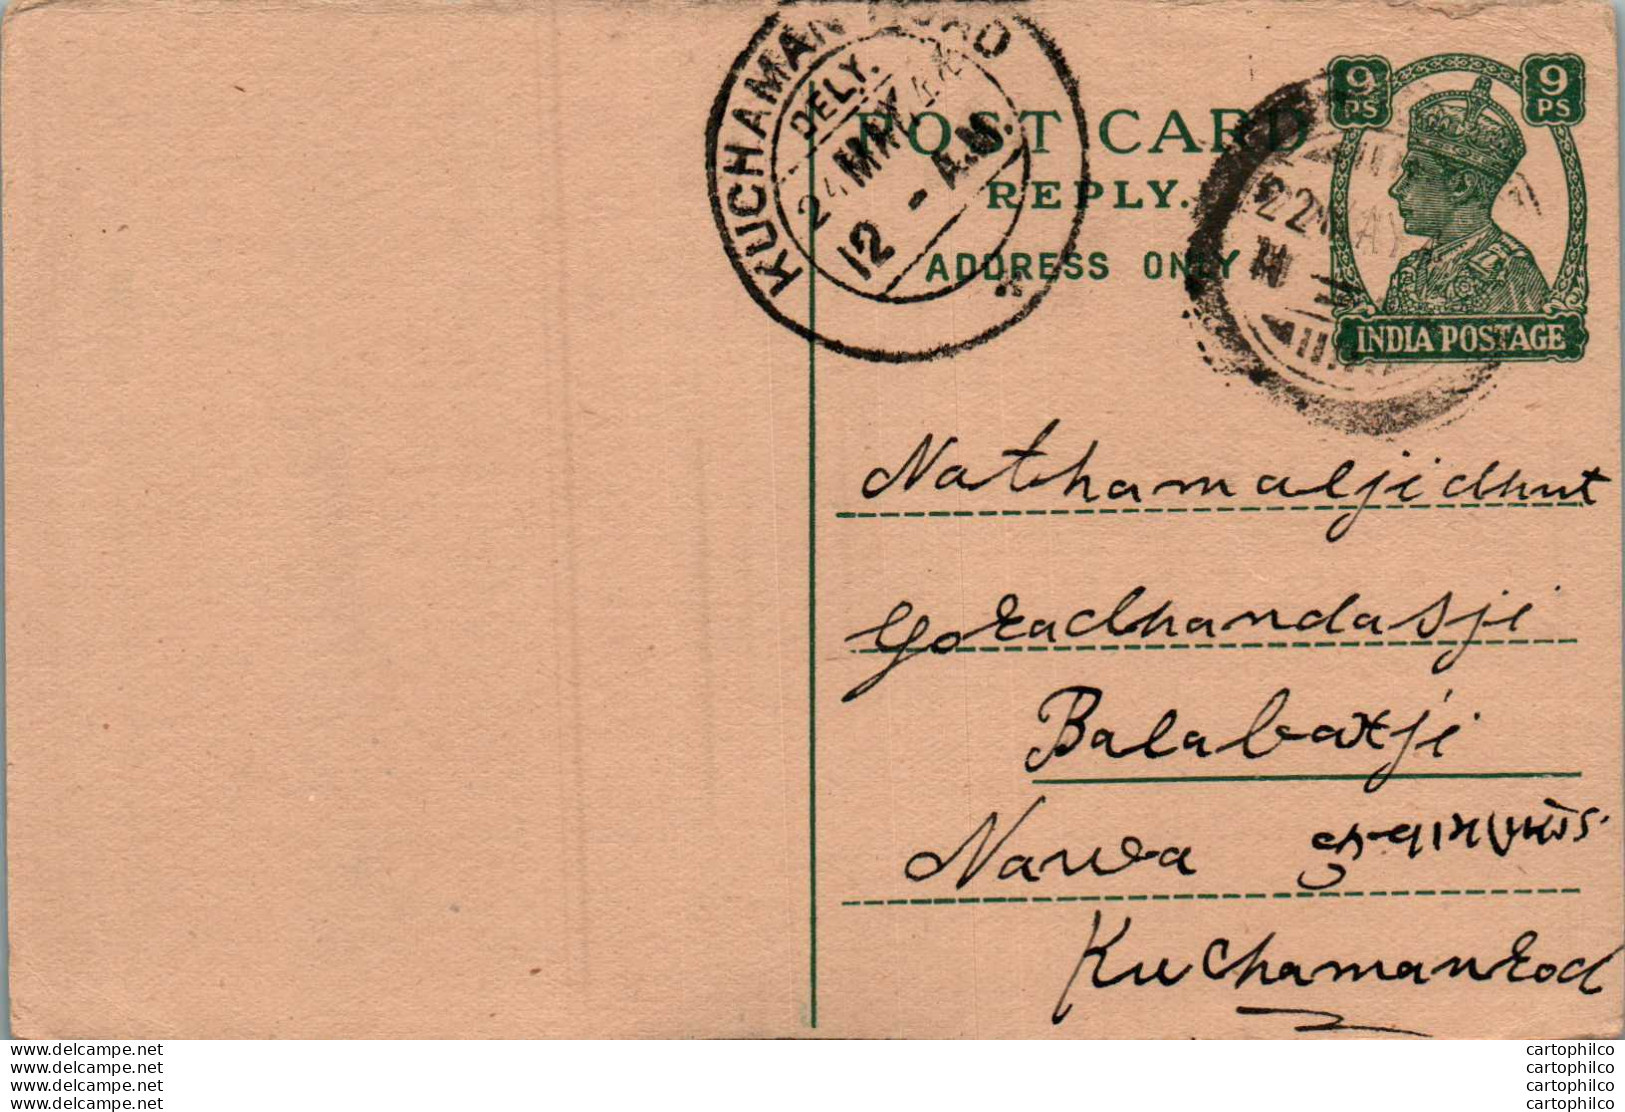 KUCHAMAN ROAD
DELY.
24 MAY 44
12 - A.M.
POST CARD
REPLY.
ADDRESS ONLY
9 PS 9 PS
INDIA POSTAGE
22 MAY 4
Nathamalji dhut
Goradhandasji
Balabaxji
Nawa
Kuchamanrod
www.delcampe.net
www.delcampe.net
www.delcampe.net
www.delcampe.net
cartophilco
cartophilco
cartophilco
cartophilco